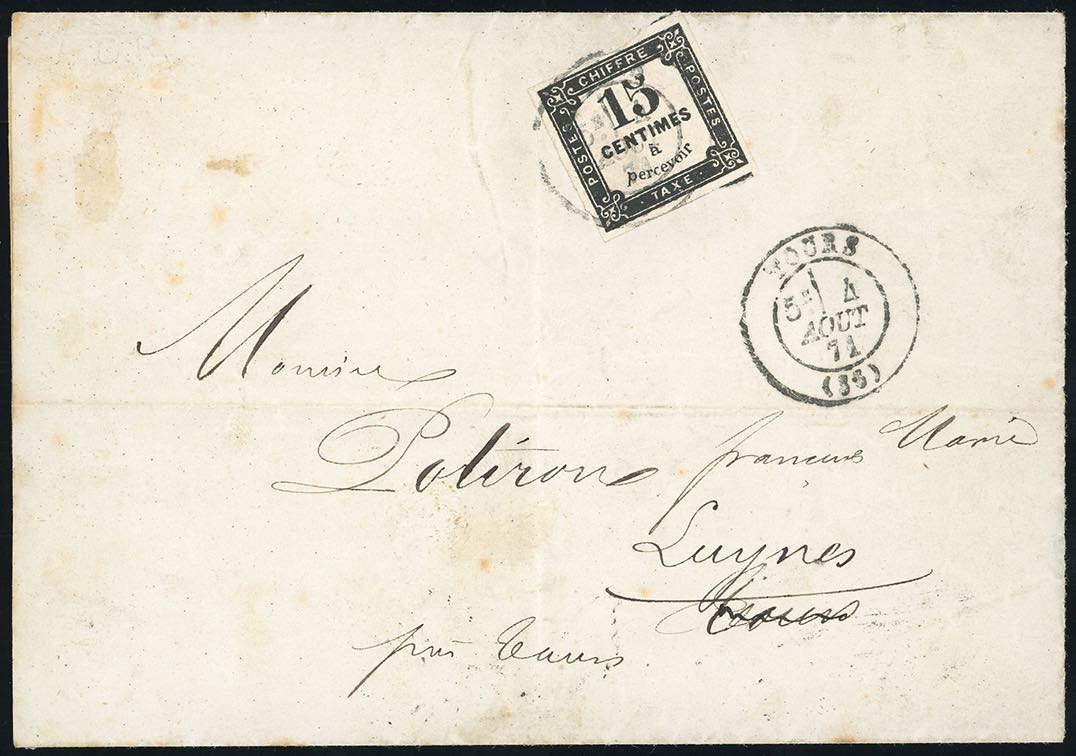 CHIFFRE
POSTES
POSTES
15
CENTIMES
à
percevoir
TAXE
TOURS
5E 4
AOUT
71
(36)
Monsieur
Potiron francois Marie
Luynes
Tours
près Tours